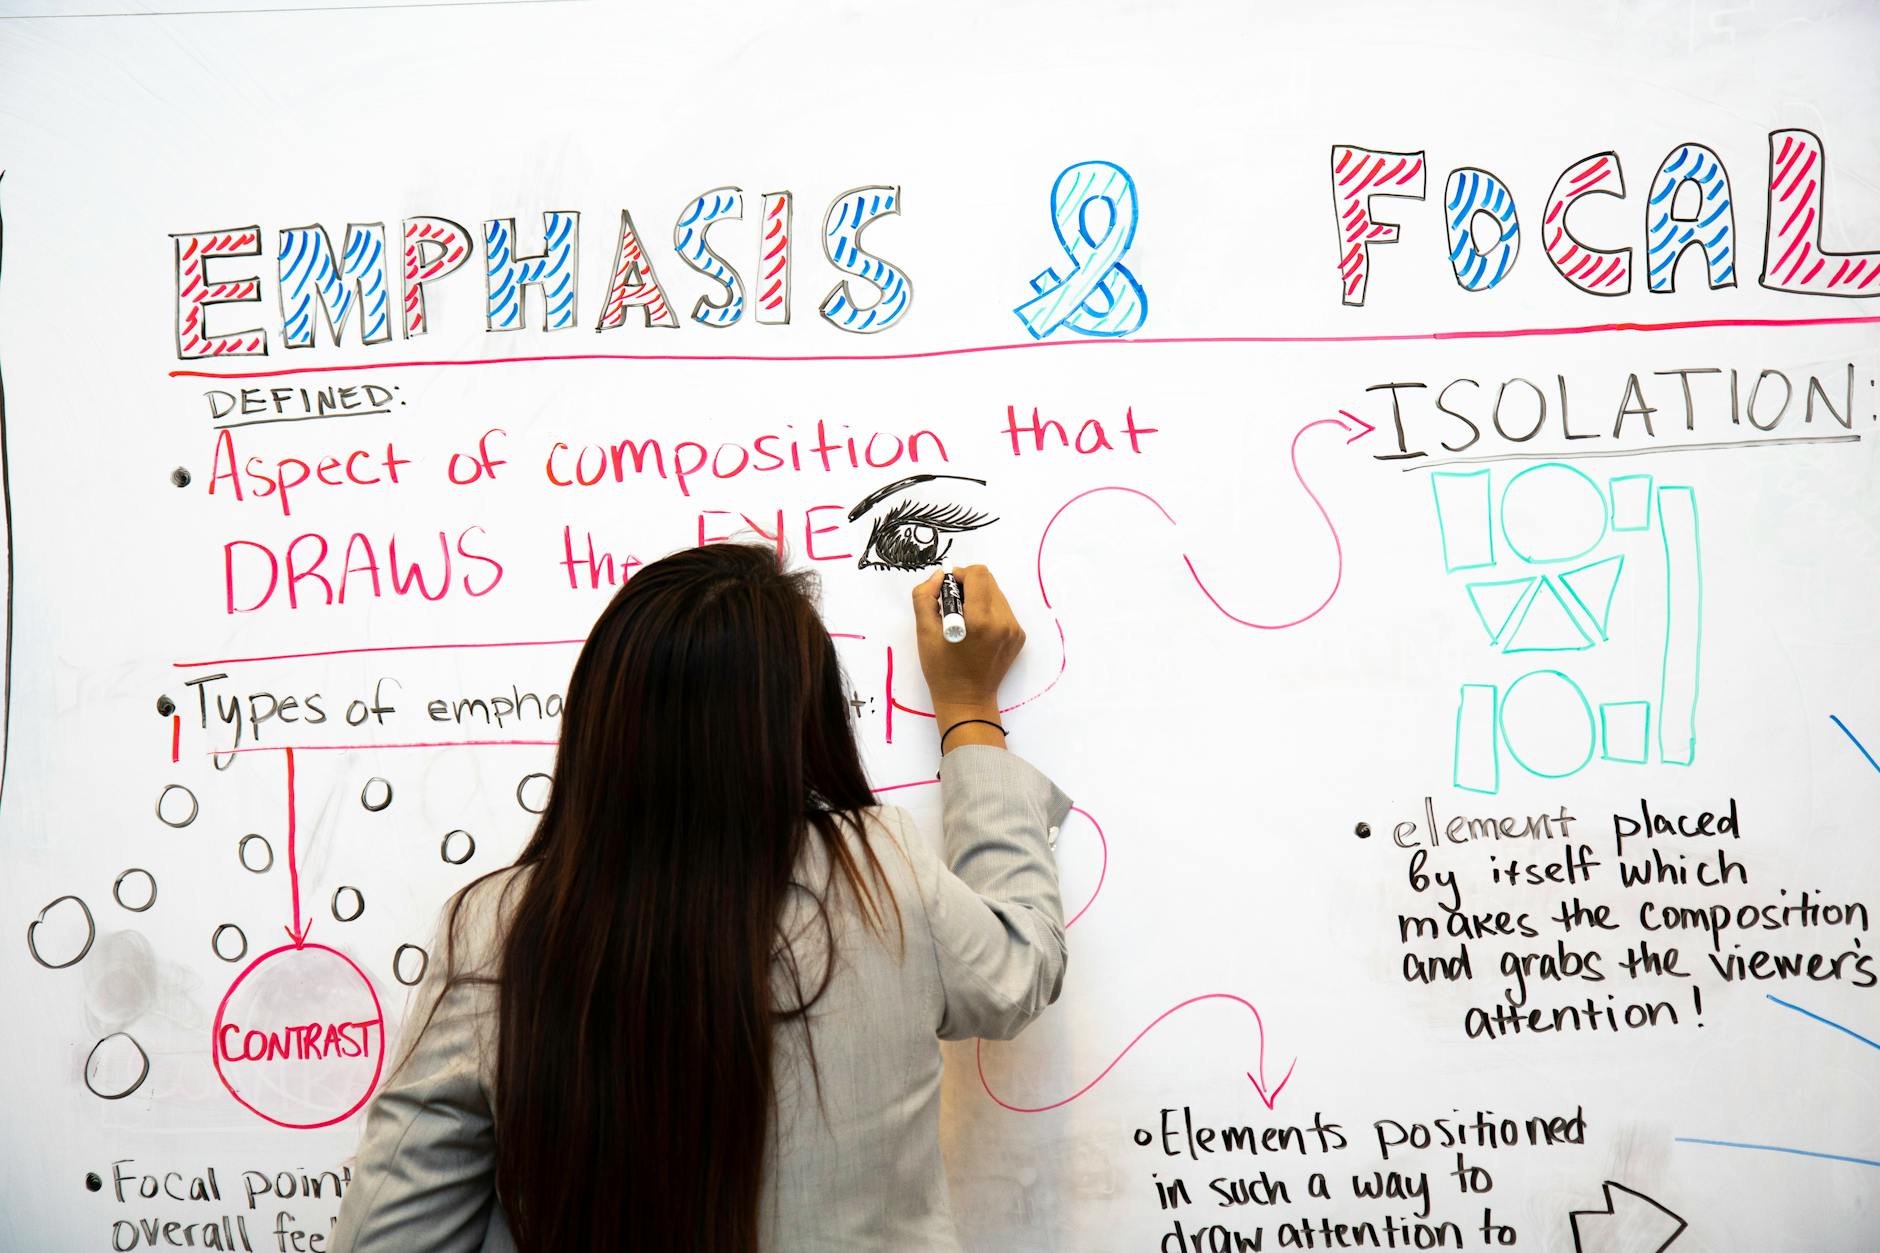 EMPHASIS & FOCAL
DEFINED:
• Aspect of composition that
DRAWS the EYE
• Types of
CONTRAST
• Focal point
overall
ISOLATION:
• element placed
by itself which
makes the composition
and grabs the viewer's
attention!
• Elements positioned
in such a way to
draw attention to